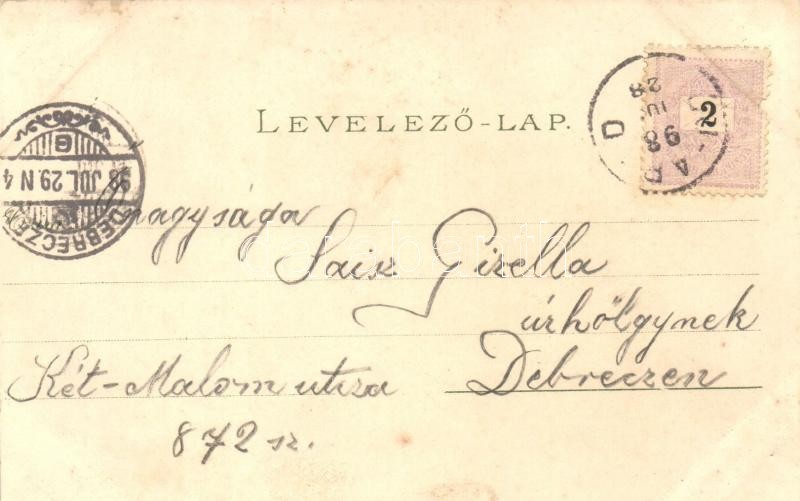 LEVELEZŐ-LAP.
2
98
28
DEBRECZEN
98 JUL. 29. N 4
nagysága
Gizella
úrhölgynek
Két-Malom utcza Debreczen
872 sz.